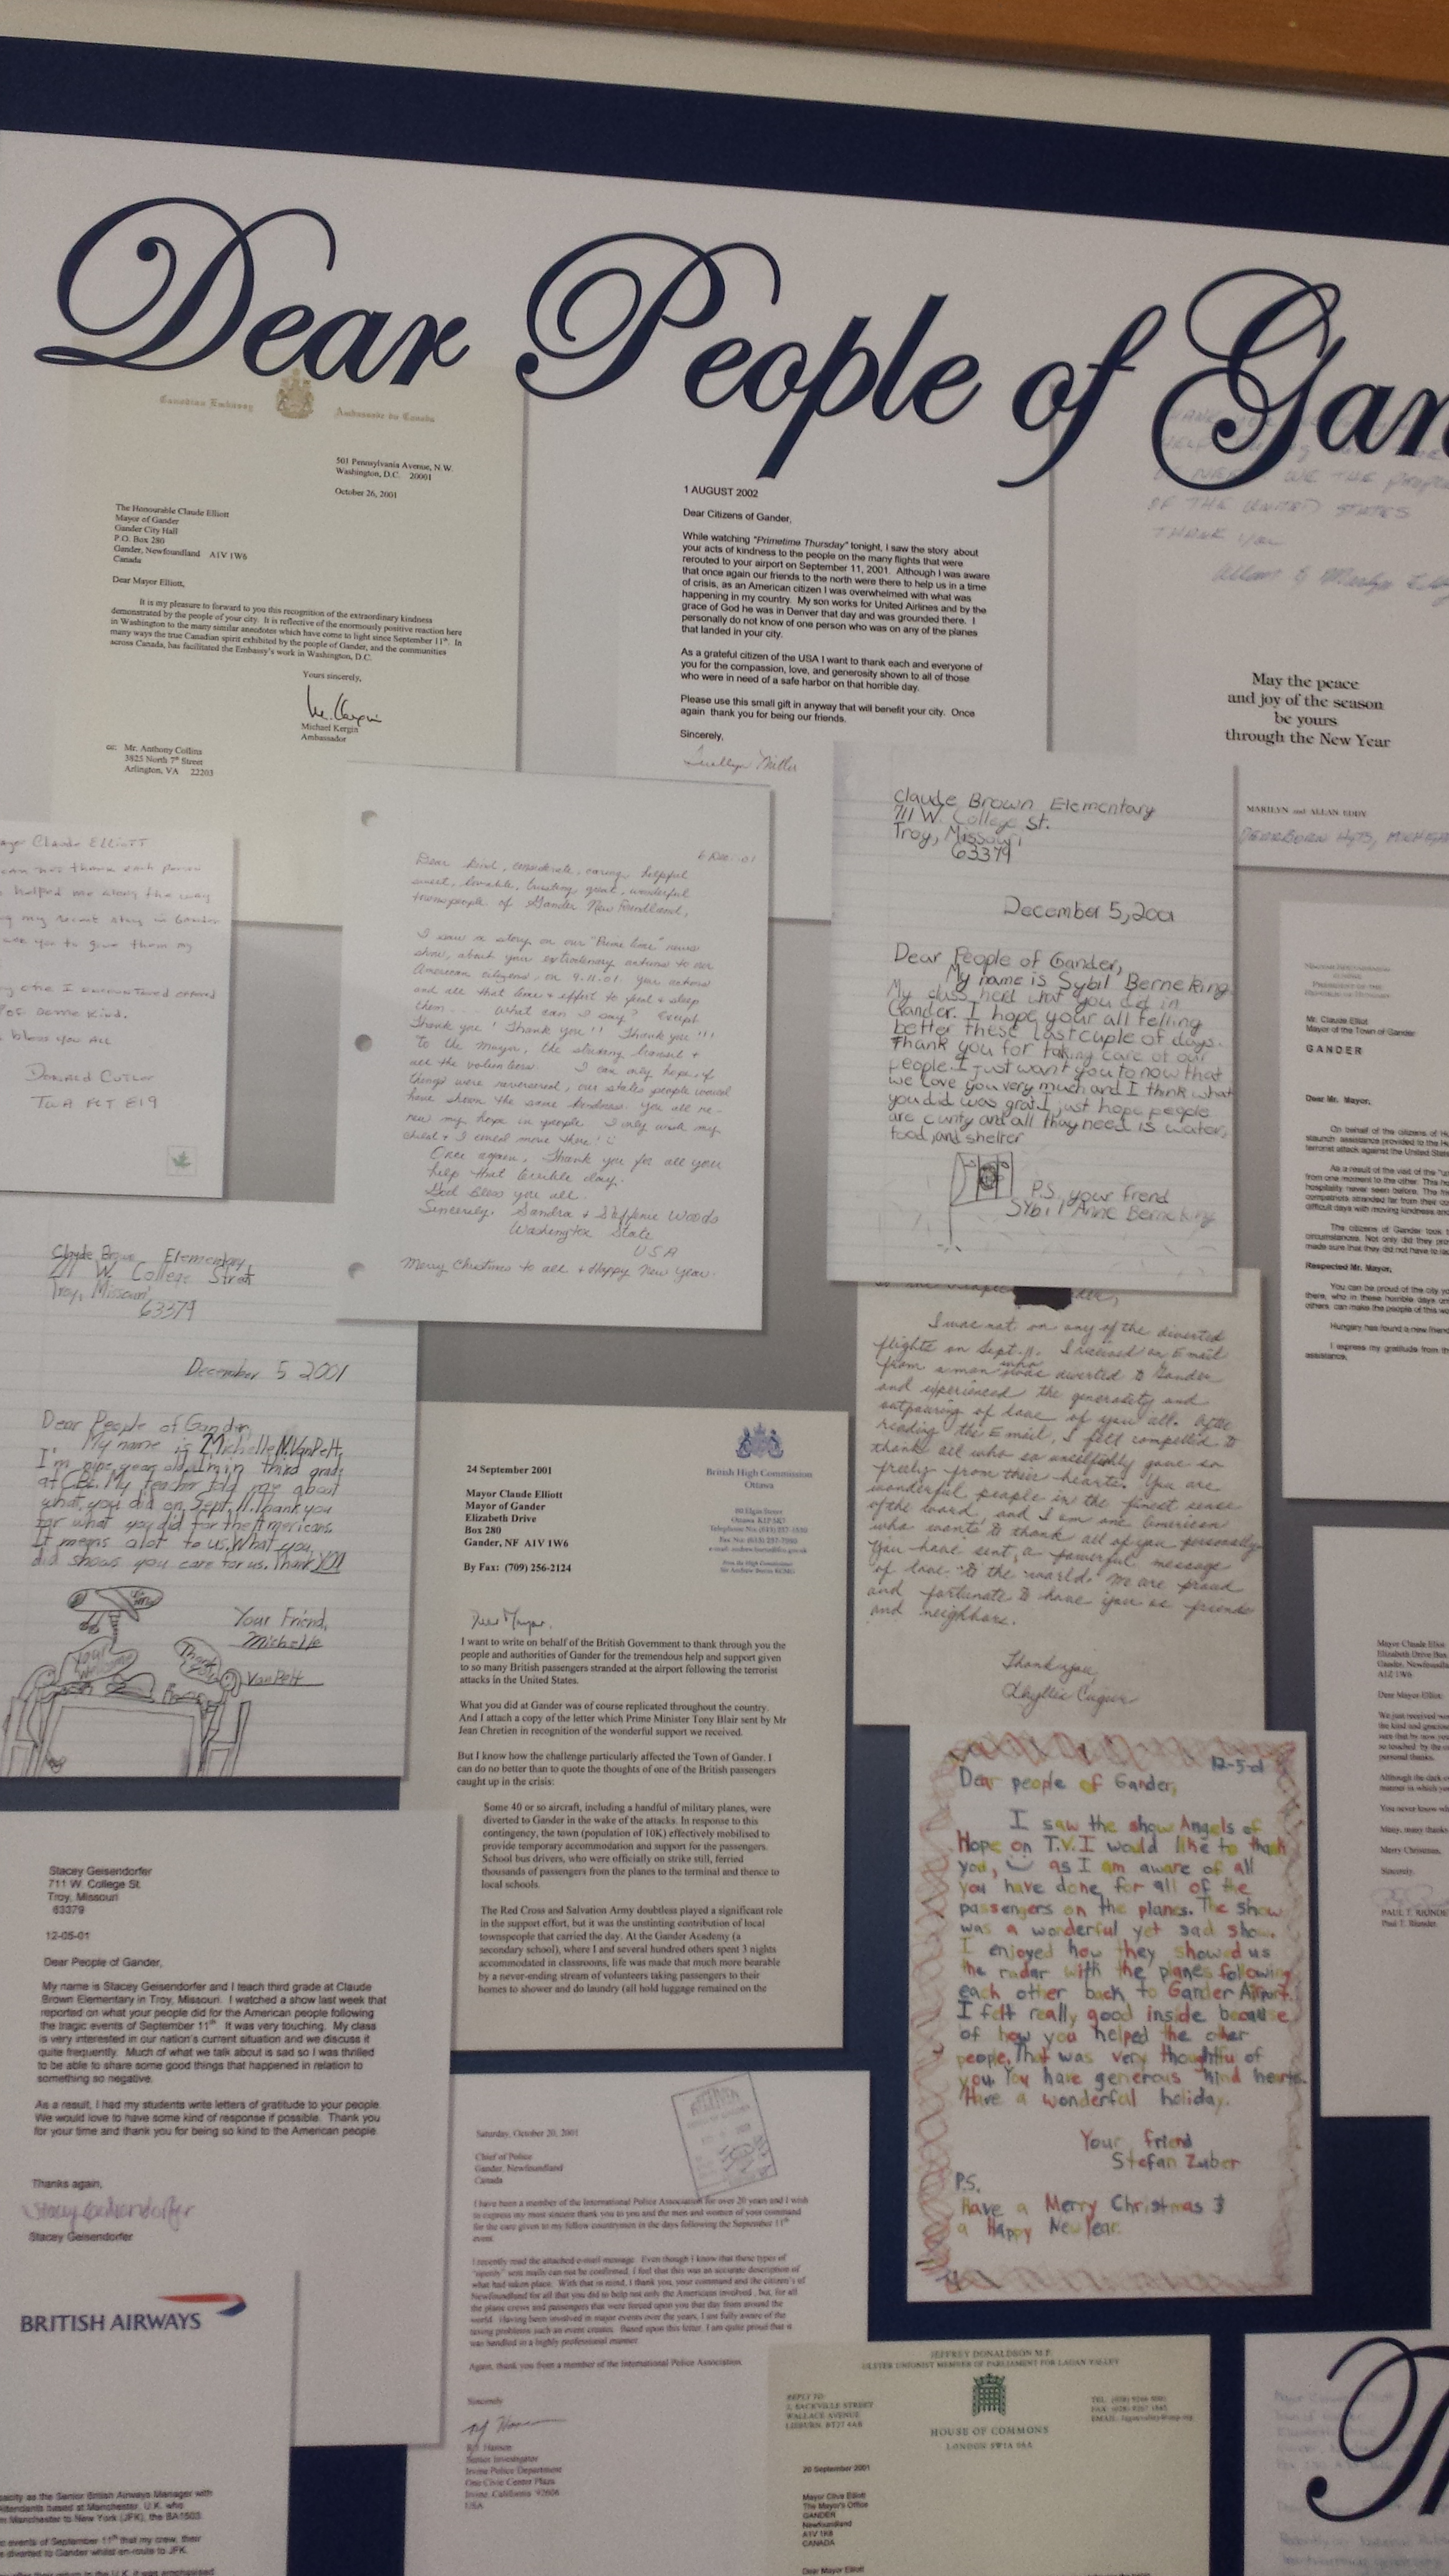 Dear People of Gan
Canadian Embassy
Ambassade du Canada
501 Pennsylvania Avenue, N.W.
Washington, D.C. 20001
October 26, 2001
The Honourable Claude Elliott
Mayor of Gander
Gander City Hall
P.O. Box 280
Gander, Newfoundland A1V 1W6
Canada
Dear Mayor Elliott,
It is my pleasure to forward to you this recognition of the extraordinary kindness
demonstrated by the people of your city. It is reflective of the enormously positive reaction here
in Washington to the many similar anecdotes which have come to light since September 11th. In
many ways the true Canadian spirit exhibited by the people of Gander, and the communities
across Canada, has facilitated the Embassy's work in Washington, D.C.
Yours sincerely,
Michael Kergin
Ambassador
cc: Mr. Anthony Collins
3825 North 7th Street
Arlington, VA 22203
1 AUGUST 2002
Dear Citizens of Gander,
While watching "Primetime Thursday" tonight, I saw the story about
your acts of kindness to the people on the many flights that were
rerouted to your airport on September 11, 2001. Although I was aware
that once again our friends to the north were there to help us in a time
of crisis, as an American citizen I was overwhelmed with what was
happening in my country. My son works for United Airlines and by the
grace of God he was in Denver that day and was grounded there. I
personally do not know of one person who was on any of the planes
that landed in your city.
As a grateful citizen of the USA I want to thank each and everyone of
you for the compassion, love, and generosity shown to all of those
who were in need of a safe harbor on that horrible day.
Please use this small gift in anyway that will benefit your city. Once
again thank you for being our friends.
Sincerely,
OF THE UNITED STATES
THANK YOU
May the peace
and joy of the season
be yours
through the New Year
MARILYN and ALLAN EDDY
DEARBORN HGTS, MICHIGAN
Claude Elliott
not thank each person
helped me along the way
my recent stay in Gander
you to give them my
one I encountered offered
of some kind.
bless you all
Donald Cutler
TWA FLT 819
6 Dec. 01
Dear kind, considerate, caring, helpful
sweet, loveable, trusting, great, wonderful
townspeople of Gander New Foundland,
I saw a story on our "Prime time" news
show, about your extrodenary actions to our
American citizens, on 9.11.01. Your actions
and all that time + effort to feed + sleep
them..... What can I say? Except
Thank you! Thank you!! Thank you!!!
to the mayor, the striking transit +
all the volunteers. I can only hope, if
things were reversered, our states people would
have shown the same kindness. You all re-
new my hope in people. I only wish my
child + I could move there!
Once again, Thank you for all your
help that terrible day.
God Bless you all.
Sincerely, Sandra + Steffenie Woods
Washington State
USA
Merry Christmas to all + Happy New Year.
Claude Brown Elementary
711 W. College St.
Troy, Missouri
63379
December 5, 2001
Dear People of Gander,
My name is Sybil Berneking
My class herd what you did in
Gander. I hope your all felling
better these last cuple of days.
Thank you for taking care of our
people. I just want you to now that
we love you very much and I think what
you did was grat. I just hope people
are and all thay need is water,
food, and shelter
P.S. your frend
Sybil Anne Berneking
Elementary
711 W. College Street
Troy, Missouri
63379
December 5 2001
Dear People of Gander,
My name is Michelle N. VanPelt,
I'm nine year old. I'm in third grade
at CBE. My teacher told me about
what you did on Sept. 11. Thank you
for what you did for the Americans
It means alot to us. What you
did shows you care for us. Thank YOU
Your Friend,
Michelle
VanPelt
Your Welcome
Thank you
I was not on any of the diverted
flights on Sept. 11. I received an E mail
from a man who was diverted to Gander
and experienced the generosity and
outpouring of love of you all. After
reading the E mail, I felt compelled to
thank all who so unselfishly gave so
freely from their hearts. You are
wonderful people in the finest sense
of the word, and I am one American
who wants to thank all of you personally.
You have sent a powerful message
of love to the world. We are proud
and fortunate to have you as friends
and neighbors.
Thank you,
24 September 2001
British High Commission
Ottawa
Mayor Claude Elliott
Mayor of Gander
Elizabeth Drive
Box 280
Gander, NF A1V 1W6
By Fax: (709) 256-2124
Dear Mayor,
I want to write on behalf of the British Government to thank through you the
people and authorities of Gander for the tremendous help and support given
to so many British passengers stranded at the airport following the terrorist
attacks in the United States.
What you did at Gander was of course replicated throughout the country.
And I attach a copy of the letter which Prime Minister Tony Blair sent by Mr
Jean Chretien in recognition of the wonderful support we received.
But I know how the challenge particularly affected the Town of Gander. I
can do no better than to quote the thoughts of one of the British passengers
caught up in the crisis:
Some 40 or so aircraft, including a handful of military planes, were
diverted to Gander in the wake of the attacks. In response to this
contingency, the town (population of 10K) effectively mobilised to
provide temporary accommodation and support for the passengers.
School bus drivers, who were officially on strike still, ferried
thousands of passengers from the planes to the terminal and thence to
local schools.
The Red Cross and Salvation Army doubtless played a significant role
in the support effort, but it was the unstinting contribution of local
townspeople that carried the day. At the Gander Academy (a
secondary school), where I and several hundred others spent 3 nights
accommodated in classrooms, life was made that much more bearable
by a never-ending stream of volunteers taking passengers to their
homes to shower and do laundry (all hold luggage remained on the
12-5-01
Dear people of Gander,
I saw the show Angels of
Hope on T.V. I would like to thank
you, as I am aware of all
you have done for all of the
passengers on the planes. The show
was a wonderful yet sad show.
I enjoyed how they showed us
the radar with the planes following
each other back to Gander Airport.
I felt really good inside because
of how you helped the other
people. That was very thoughtful of
you. You have generous kind hearts.
Have a wonderful holiday.
Your friend
Stefan Zuber
P.S.
Have a Merry Christmas &
a Happy New Year.
Stacey Geisendorfer
711 W. College St.
Troy, Missouri
63379
12-05-01
Dear People of Gander,
My name is Stacey Geisendorfer and I teach third grade at Claude
Brown Elementary in Troy, Missouri. I watched a show last week that
reported on what your people did for the American people following
the tragic events of September 11th. It was very touching. My class
is very interested in our nation's current situation and we discuss it
quite frequently. Much of what we talk about is sad so I was thrilled
to be able to share some good things that happened in relation to
something so negative.
As a result, I had my students write letters of gratitude to your people.
We would love to have some kind of response if possible. Thank you
for your time and thank you for being so kind to the American people.
Thanks again,
Stacey Geisendorfer
Stacey Geisendorfer
BRITISH AIRWAYS
as the Senior British Airways Manager with
based at Manchester, U.K. who
Manchester to New York (JFK), the BA1503.
events of September 11th that my crew, their
diverted to Gander whilst en-route to JFK.
Saturday, October 20, 2001
Chief of Police
Gander, Newfoundland
Canada
I have been a member of the International Police Association for over 20 years and I wish
to express my most sincere thank you to you and the men and women of your command
for the care given to my fellow countrymen in the days following the September 11th
event.
I recently read the attached e-mail message. Even though I know that these types of
sent mails can not be confirmed, I feel that this was an accurate description of
what had taken place. With that in mind, I thank you, your command and the citizen's of
Newfoundland for all that you did to help not only the Americans involved, but, for all
the plane crews and passengers that were forced upon you that day from around the
world. Having been involved in major events over the years, I am fully aware of the
taxing problems such an event creates. Based upon this letter, I am quite proud that it
was handled in a highly professional manner.
Again, thank you from a member of the International Police Association.
Sincerely
Senior Investigator
Irvine Police Department
One Civic Center Plaza
Irvine, California 92606
USA
JEFFREY DONALDSON M.P.
ULSTER UNIONIST MEMBER OF PARLIAMENT FOR LAGAN VALLEY
REPLY TO
2, SACKVILLE STREET
WALLACE AVENUE
LISBURN, BT27 4AB
HOUSE OF COMMONS
LONDON SW1A 0AA
20 September 2001
Mayor Clive Elliott
The Mayor's Office
GANDER
Newfoundland
A1V 1K6
CANADA
Dear Mayor Elliott
Mr. Claude Elliot
Mayor of the Town of Gander
GANDER
Dear Mr. Mayor,
On behalf of the citizens of
staunch assistance provided to the
terrorist attack against the United
As a result of the visit of the
from one moment to the other. This
hospitality never seen before. The
compatriots stranded far from their
difficult days with moving kindness and
The citizens of Gander took
circumstances. Not only did they
made sure that they did not have to
Respected Mr. Mayor,
You can be proud of the city
there, who in these horrible days
others can make the people of this
Hungary has found a new
I express my gratitude from
assistance.
Mayor Claude
Elizabeth Drive Box
Gander,
A1Z 1W6
Dear Mayor Elliott
We just received
Merry Christmas,
Sincerely,
Th